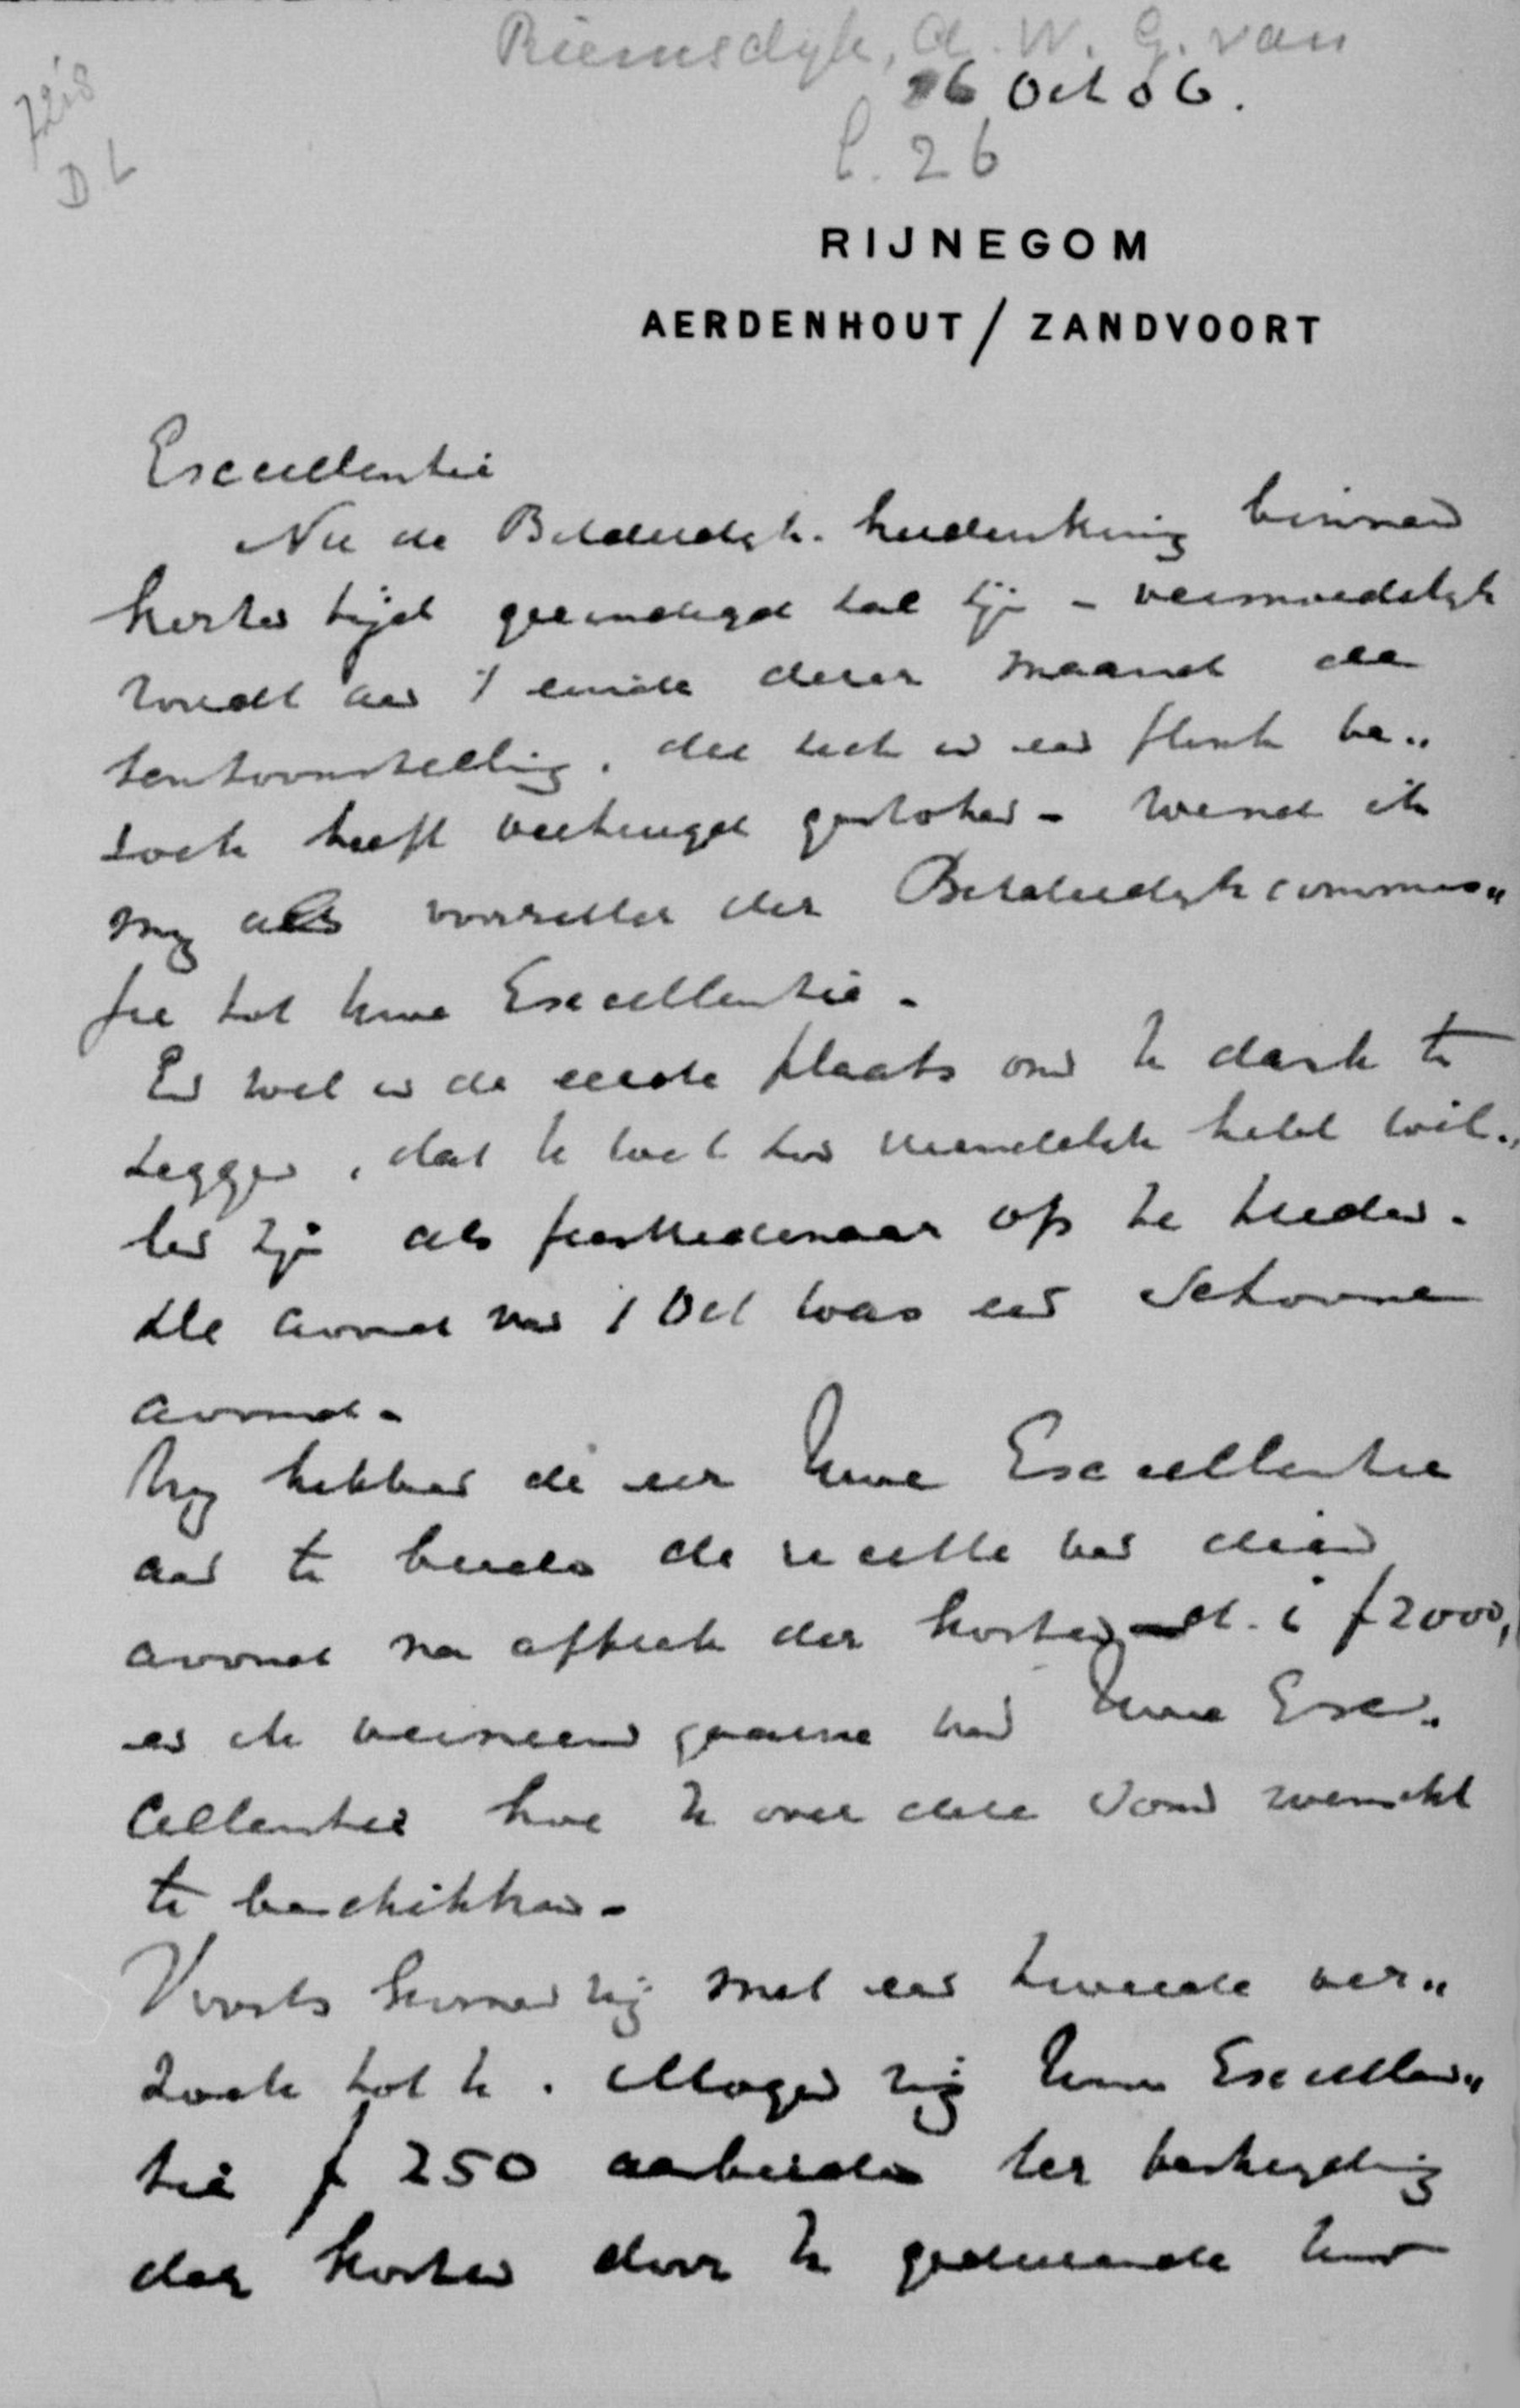 Riemsdijk, A. W. G. van
16 Oct 06.
C. 26
DL
RIJNEGOM
AERDENHOUT / ZANDVOORT
Excellentie
Nu de Bilderdijk-herdenking binnen
korten tijd geeindigd zal zijn – vermoedelijk
wordt aan 't einde dezer maand de
tentoonstelling, die zich in een flink be„
zoek heeft verheugd gesloten – wend ik
mij als voorzitter der Bilderdijkcommis„
sie tot Uwe Excellentie –
En wel in de eerste plaats om U dank te
zeggen, dat U wel zoo vriendelijk hebt wil„
len zijn als feestredenaar op te treden.
De avond van 1 Oct was een schoone
avond –
Wij hebben de eer Uwe Excellentie
aan te bieden de recette van dien
avond na aftrek der kosten d. i f 2000,
en ik verneem gaarne van Uwe Exc„
cellentie hoe U over deze som wenscht
te beschikken –
Voorts komen wij met een tweede ver„
zoek tot U. Mogen wij Uwe Excellen„
tie f 250 aanbieden ter bestrijding
der kosten door U gedurende Uw